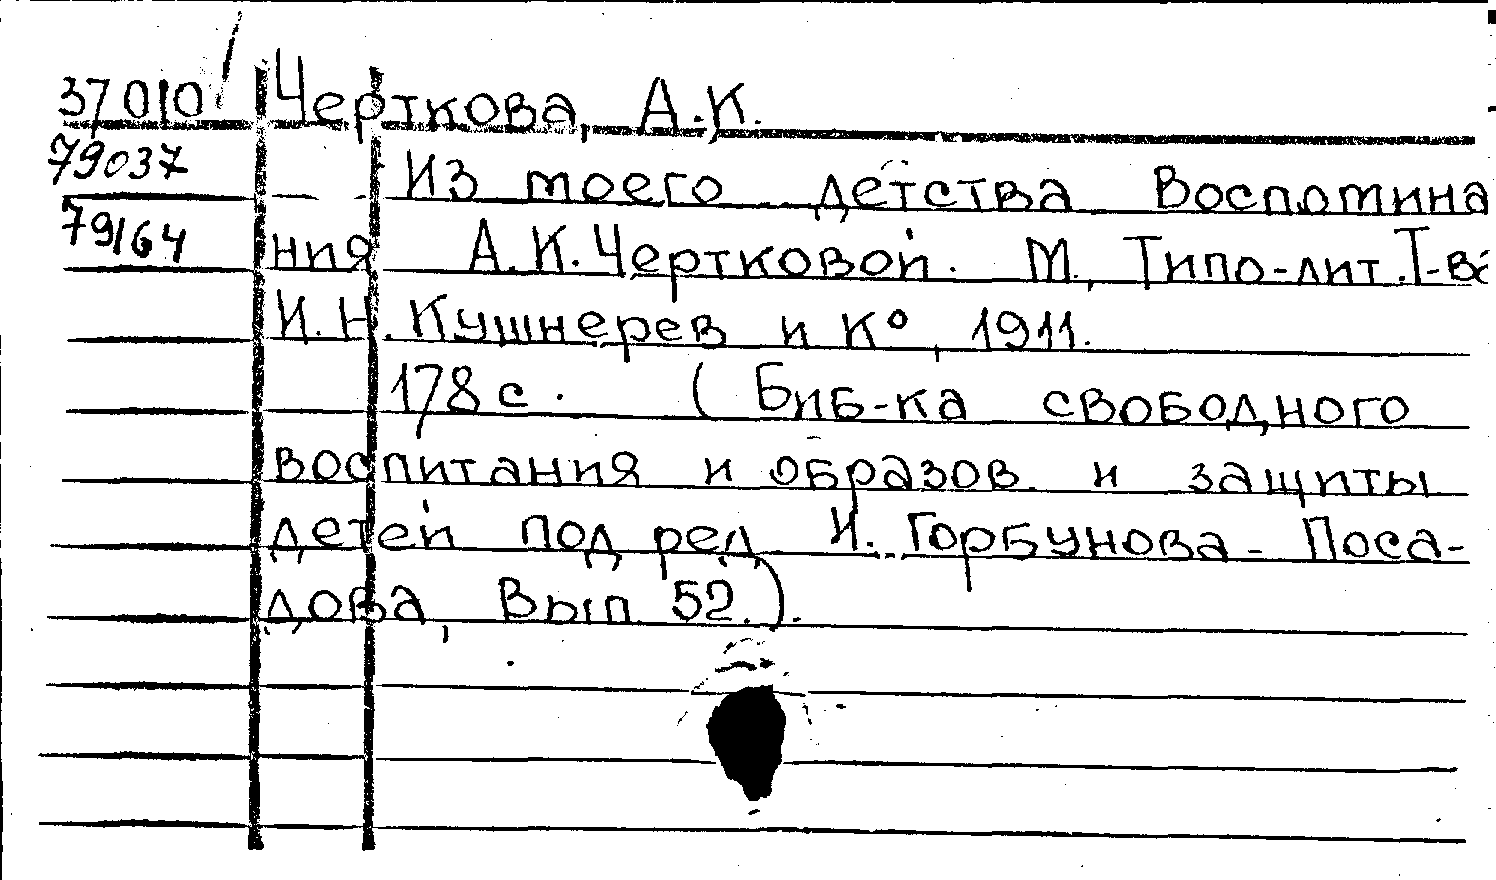 37010 Черткова, А.К.
79037 Из моего детства Воспомина
79164 ния А.К.Чертковой. М., Типо-лит.Т-ва
И.Н.Кушнерев и К°, 1911.
178с. (Биб-ка свободного
воспитания и образов. и защиты
детей под ред И. Горбунова-Поса-
дова, Вып 52.).